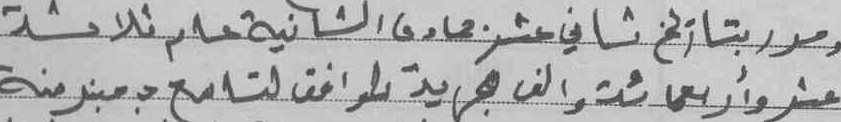 وحرر بتاريخ ثاني عشر جمادى الثانية عام ثلاثة
عشر وأربعمائة والف هجرية الموافق لتاسع دجنبر سنة